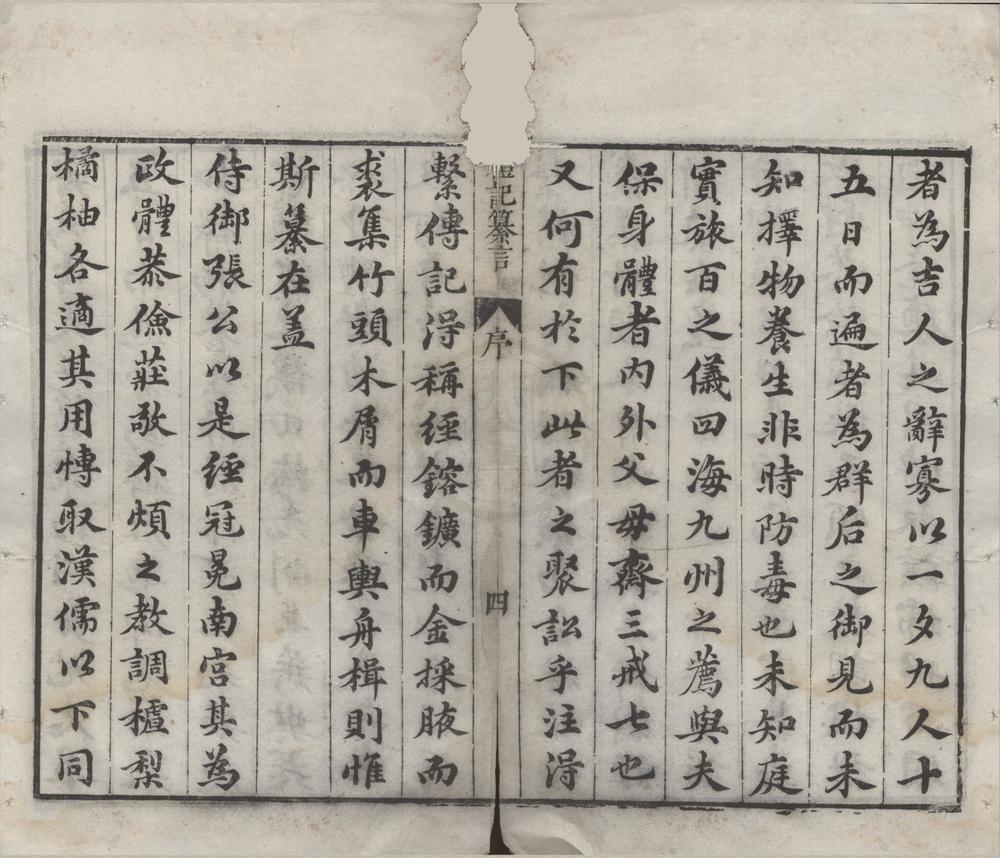 者為吉人之辭寡以一夕九人十
五日而遍者為群后之御見而未
知擇物養生非時防毒也未知庭
實旅百之儀四海九州之薦與夫
保身體者内外父母齋三戒七也
又何有於下此者之聚訟乎注淂
禮記纂言
序
四
繫傳記淂稱經鎔鑛而金採腋而
裘集竹頭木屑而車輿舟楫則惟
斯纂在盖
侍御張公以是經冠冕南宮其為
政體恭儉莊敬不煩之教調樝梨
橘柚各適其用慱取漢儒以下同